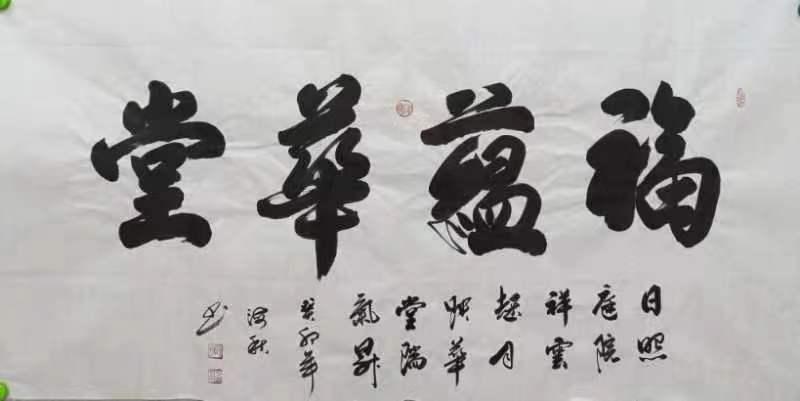 福蘊華堂
日照
庭院
祥雲
起月
映華
堂瑞
氣昇
癸卯年
书